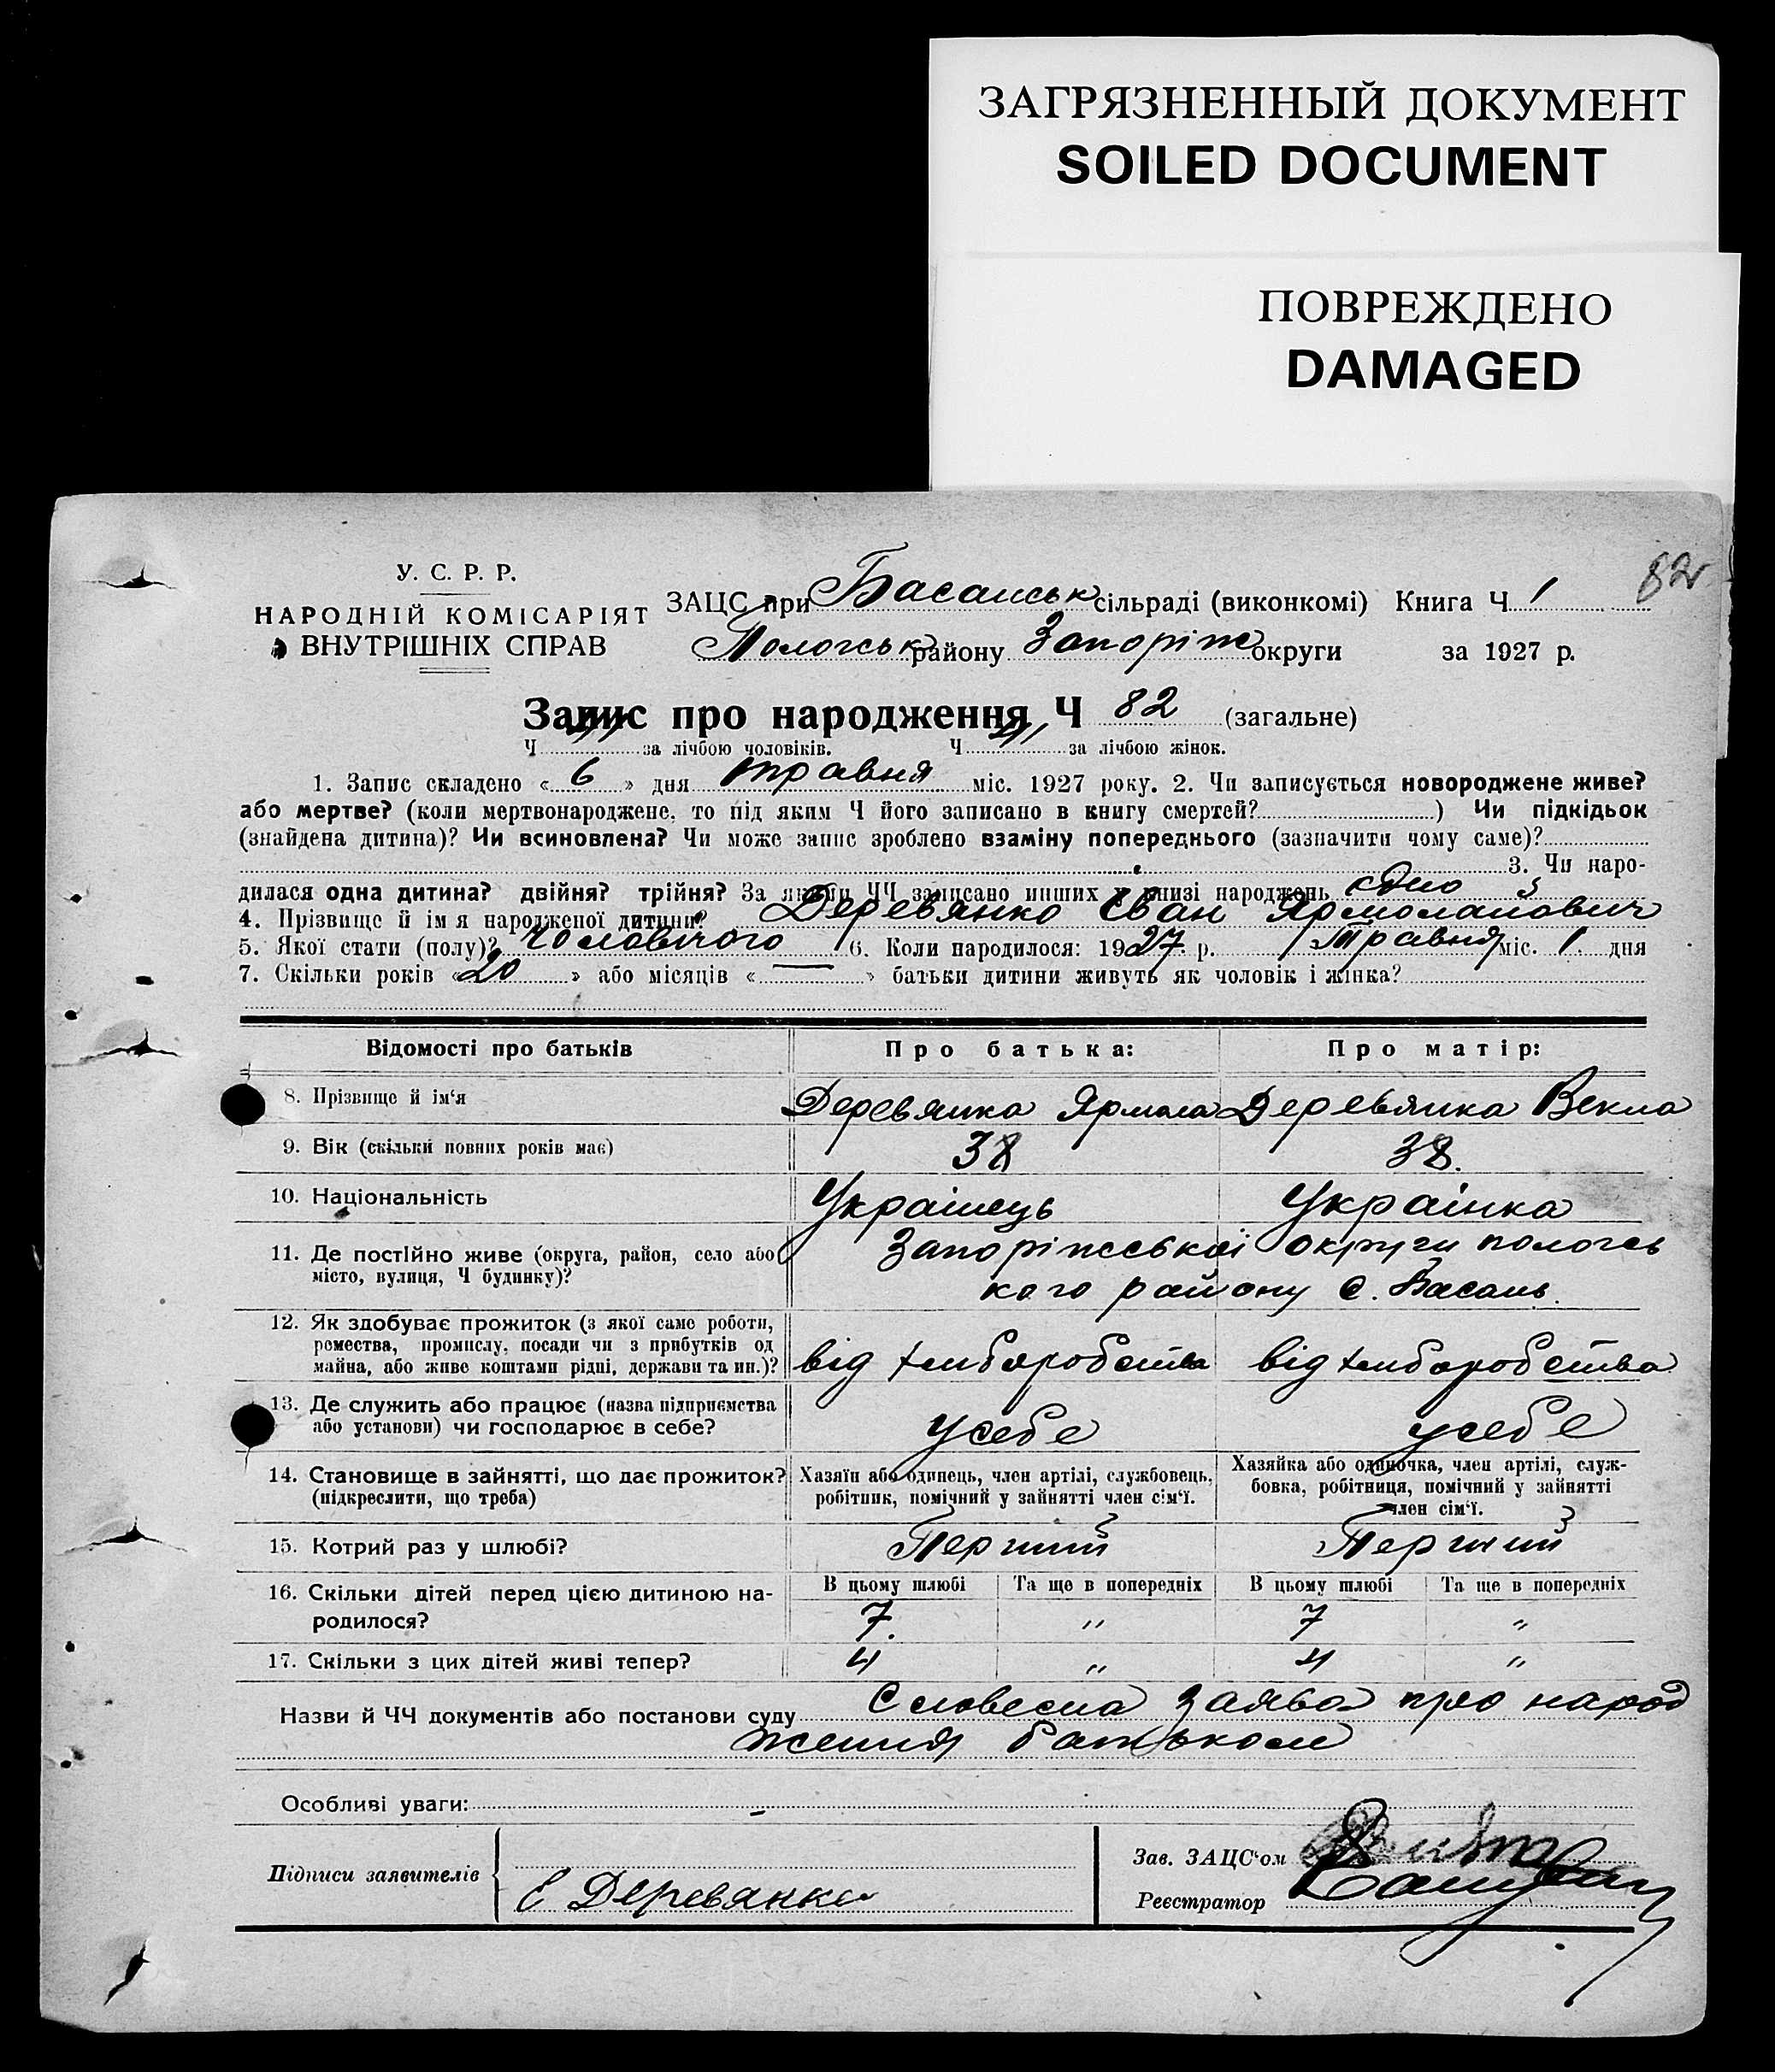 ЗАГРЯЗНЕННЫЙ ДОКУМЕНТ
SOILED DOCUMENT
ПОВРЕЖДЕНО
DAMAGED
82
У. С. Р. Р.
НАРОДНІЙ КОМІСАРІЯТ
ВНУТРІШНІХ СПРАВ
ЗАЦС при Басанськ сільраді (виконкомі) Книга Ч 1
Пологськ району Запоріж округи за 1927 р.
Запис про народження Ч 82 (загальне)
Ч за лічбою чоловіків. Ч за лічбою жінок.
1. Запис складено « 6 » дня травня міс. 1927 року. 2. Чи записується новороджене живе?
або мертве? (коли мертвонароджене, то під яким Ч його записано в книгу смертей? ) Чи підкідьок
(знайдена дитина)? Чи всиновлена? Чи може запис зроблено взаміну попереднього (зазначити чому саме)?
3. Чи наро-
дилася одна дитина? двійня? трійня? За якими ЧЧ записано инших у книзі народжень одно
4. Прізвище й імя народженої дитини? Деревянко Іван Ярмолаиович
5. Якої стати (полу)? чоловічого 6. Коли народилося: 1927 р. Травня міс. 1. дня
7. Скільки років « 20 » або місяців « — » батьки дитини живуть як чоловік і жінка?
Відомості про батьків Про батька: Про матір:
8. Прізвище й ім‘я Деревянка Ярмола Деревянка Векла
9. Вік (скільки повних років має) 38 38.
10. Національність Украінець Украінка
11. Де постійно живе (округа, район, село або Запоріжськоі округи пологсь
місто, вулиця, Ч будинку)? кого району с. Басань.
12. Як здобуває прожиток (з якої саме роботи,
ремества, промислу, посади чи з прибутків од
майна, або живе коштами рідні, держави та ин.)? від хліборобства від хліборобства
13. Де служить або працює (назва підприємства
або установи) чи господарює в себе? усебе усебе
14. Становище в зайнятті, що дає прожиток? Хазяїн або одинець, член артілі, службовець, Хазяйка або одиночка, член артілі, служ-
(підкреслити, що треба) робітник, помічний у зайнятті член сім‘ї. бовка, робітниця, помічний у зайнятті
член сім‘ї.
15. Котрий раз у шлюбі? Перший Перший
16. Скільки дітей перед цією дитиною на- В цьому шлюбі Та ще в попередніх В цьому шлюбі Та ще в попередніх
родилося? 7. " 7 "
17. Скільки з цих дітей живі тепер? 4 " 4 "
Назви й ЧЧ документів або постанови суду Словесна заява про народ
ження батьком
Особливі уваги: –
Підписи заявителів Е Деревянко
Зав. ЗАЦС‘ом
Реєстратор